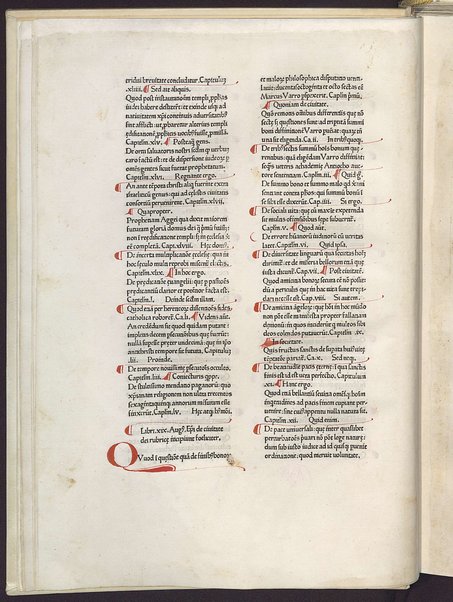 tridui breuitate concludatur. Capitulum
xliii. Sed ait aliquis.
Quod post instauratione templi, pphas
iudei habere desierunt: et exinde usqȝ ad
natiuitatem xpi continuis aduersitatibȝ
sint afflicti: ut, probaretur alterius templi
edificatione pphetis uocibȝ fuisse, pmissa.
Capitulm. xlv. Postea qȝ gens.
De ortu saluatoris nostri scdm qd uerbum
caro factum est: et de dispersione iudeorum p
omnes gentes sicut fuerat prophetatum.
Capitulm. xlvi. Regnante ergo.
An ante tempora christi aliqui fuerint extra
israeliticu genus: qui ad celestis ciuitatis
consortium peruenirent. Capitulm. xlvii.
Quapropter.
Prophetiam Aggei qua dixit maiorem
futuram gloria domus dei qȝ primu fuisset:
non i reedificatione templi: sed in ecclesia
esse completa. Ca. xlviii. Hec domus
De incerta multiplicatione ecclesie: qua in
hoc seculo multi reprobi miscentur electis.
Capitulm. xlix. In hoc ergo.
De predicatione euangelii: que p passiones
predicantium clarior et potentior facta est.
Capitulm. l. Deinde secundum illam.
Quod etiam per hereticorum dissensiones fides
catholica roboretur. Ca. li. Videns autem
An credendum sit quod quidam putant:
impletis decem persecutionibus que fuerunt:
nullam iam superesse: preter undecimam: que in ipso
antichristi tempore sit futura. Capitulum
lii. Proinde.
De tempore nouissime psecutionis occulto.
Capitulm. liii. Coniecturis quippe.
De stultissimo mendatio paganorum: quo
xpianam religionem non ultra trecentos
sexagintaquinqȝ annos mansuram esse
finxerunt. Capitulm. lv. Hec atqȝ huiusmodi
Libri. xix. Aug. Epi de ciuitate
dei rubrice incipiunt foeliciter.
Quod i questione qua de finibȝ bonorum
et malorum philosophica disputatio uenti
lauit: ducentas octoginta et octo sectas esse
Marcus Varro pspexerit. Caplm primu.
Quoniam de ciuitate.
Quo remotis omnibus differentiis que non
secte sed questiones sunt: ad tripertita summi
boni diffinitione Varro puenit: quarum tamen
una sit eligenda. Ca. ii. In tribȝ quoqȝ.
De tribȝ sectis summum hois bonum que
rentibus: qua eligenda Varro diffiniat: se
quens ueteris academie sententia Antiocho auc
tore firmatam. Caplm. iii. Quid ergo.
De summo bono et summo malo qd senti
ant xpiani contra phos: qui summu bonu i
se sibi esse dixerunt. Cap. iiii. Si ergo.
De sociali uita: que cu maxime expetenda
sit multis offensionibus sepe subuertitur.
Caplm. v. Quod autem.
De errore humanorum iudiciorum cu ueritas
latet. Capitulm. vi. Quid ipsa.
De diuersitate linguarum qua societas hoim
dirimit: et de miseria bellorum etiam que
iusta dicuntur. Cap. vii. Post ciuitatem.
Quod amicicia bonorum secura esse no possit:
dum a periculis que in hac uita sunt trepi
dari necesse est. Cap. viii. Si autem.
De amicicia angelorum: que homini in hoc mundo
non potest esse manifesta propter fallaciam
demonum: in quos inciderunt qui multos sibi
deos colendos putauerunt. Capitulm. ix.
In societate.
Quis fructus sanctis de superata huius uite
temptatione paretur. Ca. x. Sed neqȝ.
De beatitudine pacis eterne: in qua sanctis
finis est id est uera perfectio. Capitulum
xi. Hanc ergo.
Quod etiam bellantium seuitia omnesqȝ hoim
inqetudines ad pacis finem cupiant per
uenire: sine cuius appetitu nulla natura sit.
Capitulm. xii. Quod enim.
De pace uniuersali: que inter quaslibet
perturbationes priuari non potest lege nature:
dum sub iusto iudice ad id quisqȝ puenit
ordinatione: quod meruit uoluntate.